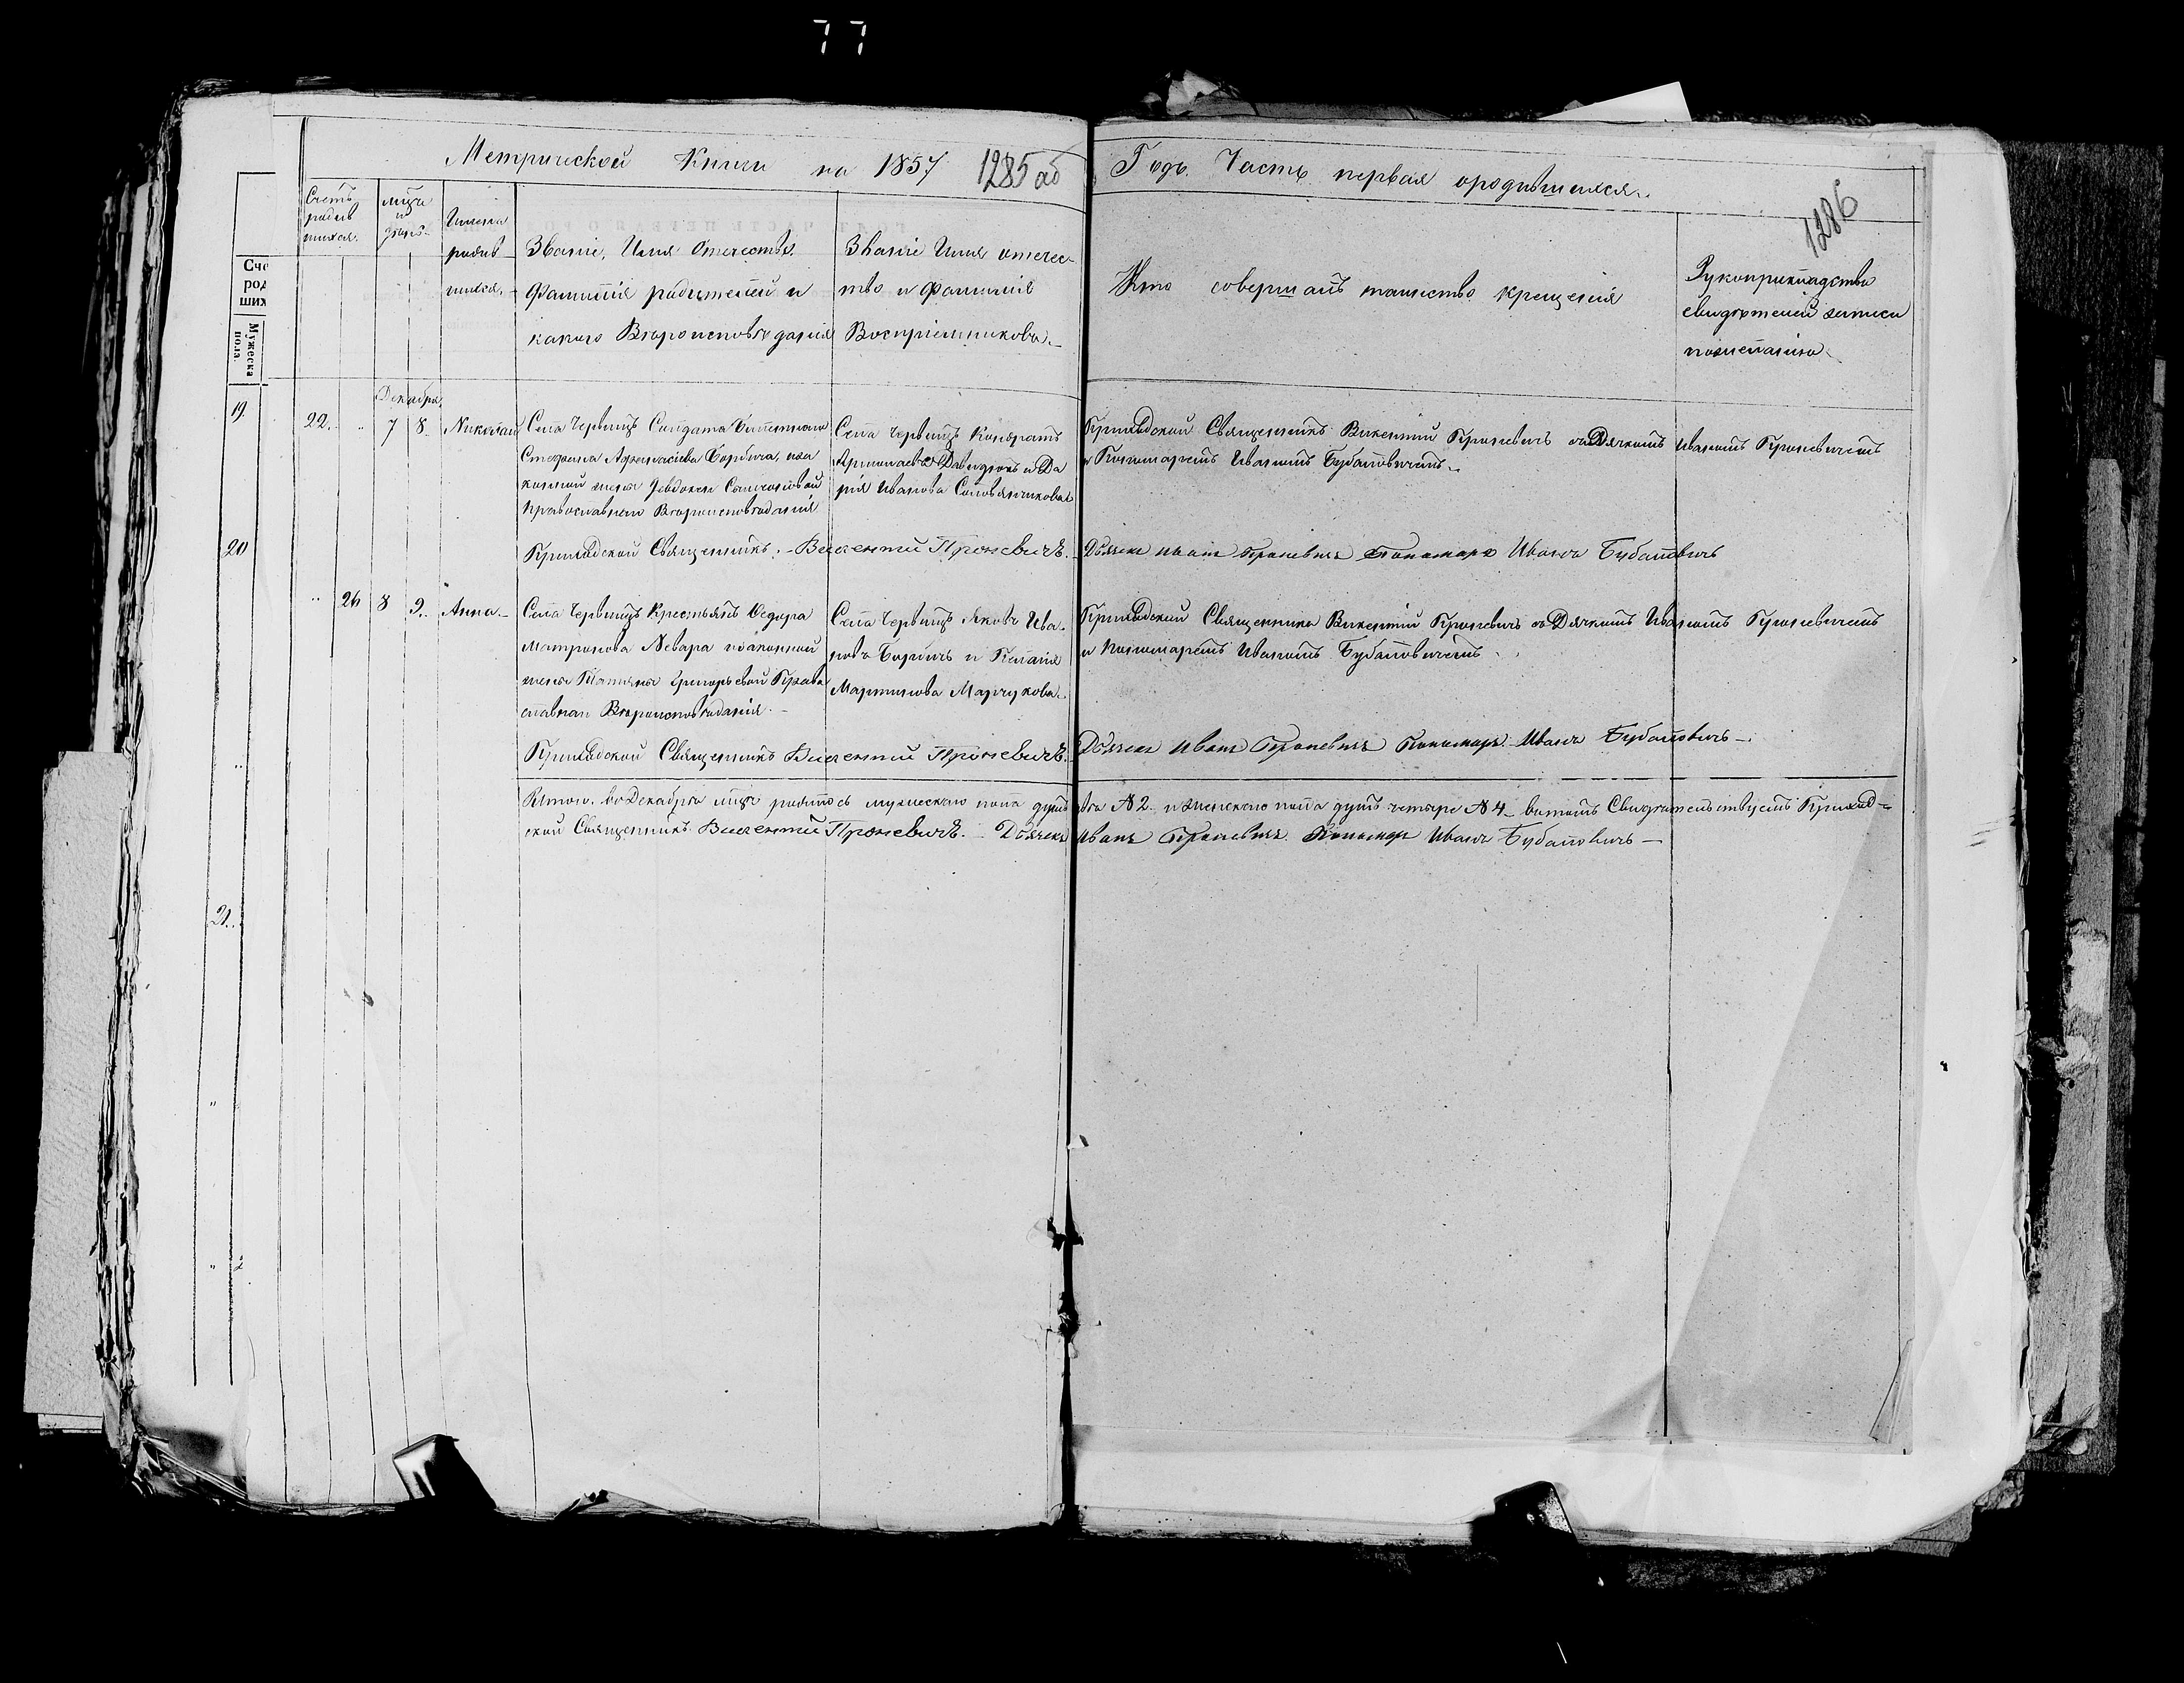 77
Метрической Книги на 1857 1285 об
Годъ. Часть первая ородившихся.
1286
Счетъ родив шихся.
мца и дней.
Имена родив шихся.
Званіе, Имя Отечество.
Фамилія родителей и
какого Вѣроисповѣданія
Званіе Имя отечес-
тво и Фамилія
Воспріемниковъ.
Кто совершалъ таинство крещенія
Рукоприкладство
свидѣтелей записи
по желанію
Сче
род
ших
Мужеска
пола.
19.
Декабря,
22. „ 7 8. Николай
Села Червищъ Солдата Билетнаго
Стефана Афанасіева Борбича, иза
конной жены Евдокеи Самсоновой
православнаго Вѣроисповѣданія
Села Червищъ Кондратъ
Давидюкъ и Да
рія Иванова
Приходской Священникъ Викентій Проневичъ съ Дячкомъ Иваномъ Проневичемъ
и Пономаремъ Иваномъ Бубановичемъ.
20
Приходской Священникъ. Викентій Проневичъ.
Дьячекъ Иванъ Проневичъ Пономарь Иванъ Бубановичъ
„ 26 8 9. Анна
Села Червищъ Крестьянъ Федора
Матронова Невара изаконной
жены Татіяны Григорьевой Право
славнаго Вѣроисповѣданія.
Села Червищъ Яковъ Ива-
новъ Борбичъ и Пелагія
Мартинова Марчукова.
Приходский Священникъ Викентій Проневичъ съ Дячкомъ Иваномъ Проневичемъ
и Пономаремъ Иваномъ Бубановичемъ.
„
Приходской Священникъ Викентій Проневичъ.
Дьячекъ Иванъ Проневичъ Пономарь Иванъ Бубановичъ.
Итого. въ Декабрѣ мцѣ родилось мужескаго пола душъ два N 2. и женскаго пола душъ четыре N 4 вътомъ Свидѣтельствуемъ Приход-
ской Священникъ Викентій Проневичъ. Дьячекъ Иванъ Проневичъ. Пономарь Иванъ Бубановичъ
21.
„
„ 2